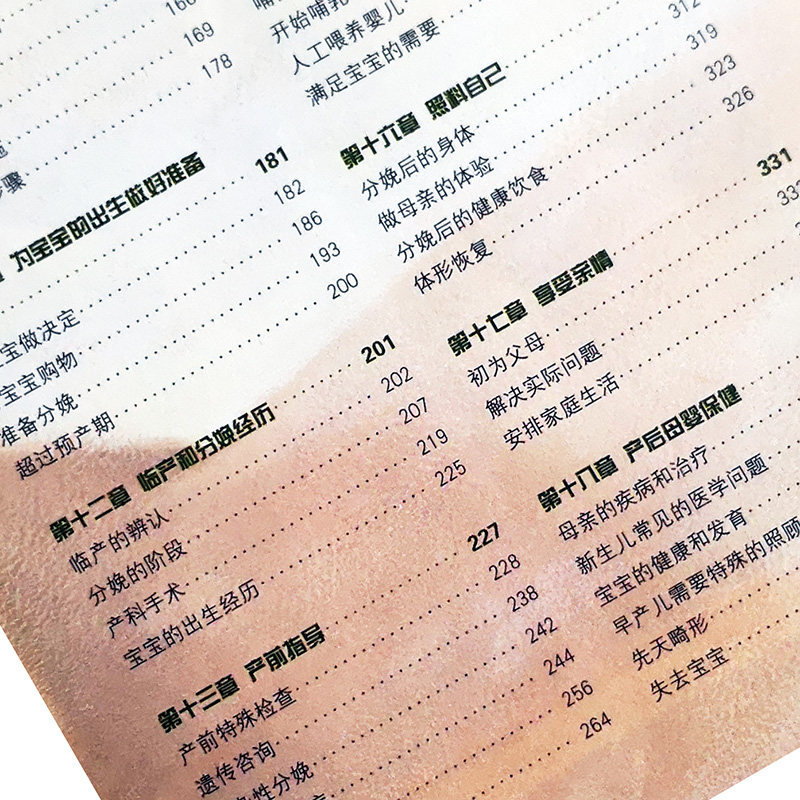 169
178
骤
为宝宝的出生做好准备 181
宝做决定 182
宝宝购物 186
准备分娩 193
超过预产期 200
第十二章 临产和分娩经历 201
临产的辨认 202
分娩的阶段 207
产科手术 219
宝宝的出生经历 225
第十三章 产前指导 227
产前特殊检查 228
遗传咨询 238
性分娩 242
244
256
264
开始哺乳
人工喂养婴儿
满足宝宝的需要
第十六章 照料自己
分娩后的身体 312
做母亲的体验 319
分娩后的健康饮食 323
体形恢复 326
第十七章 享受亲情 331
初为父母
解决实际问题
安排家庭生活
第十八章 产后母婴保健
母亲的疾病和治疗
新生儿常见的医学问题
宝宝的健康和发育
早产儿需要特殊的照顾
先天畸形
失去宝宝